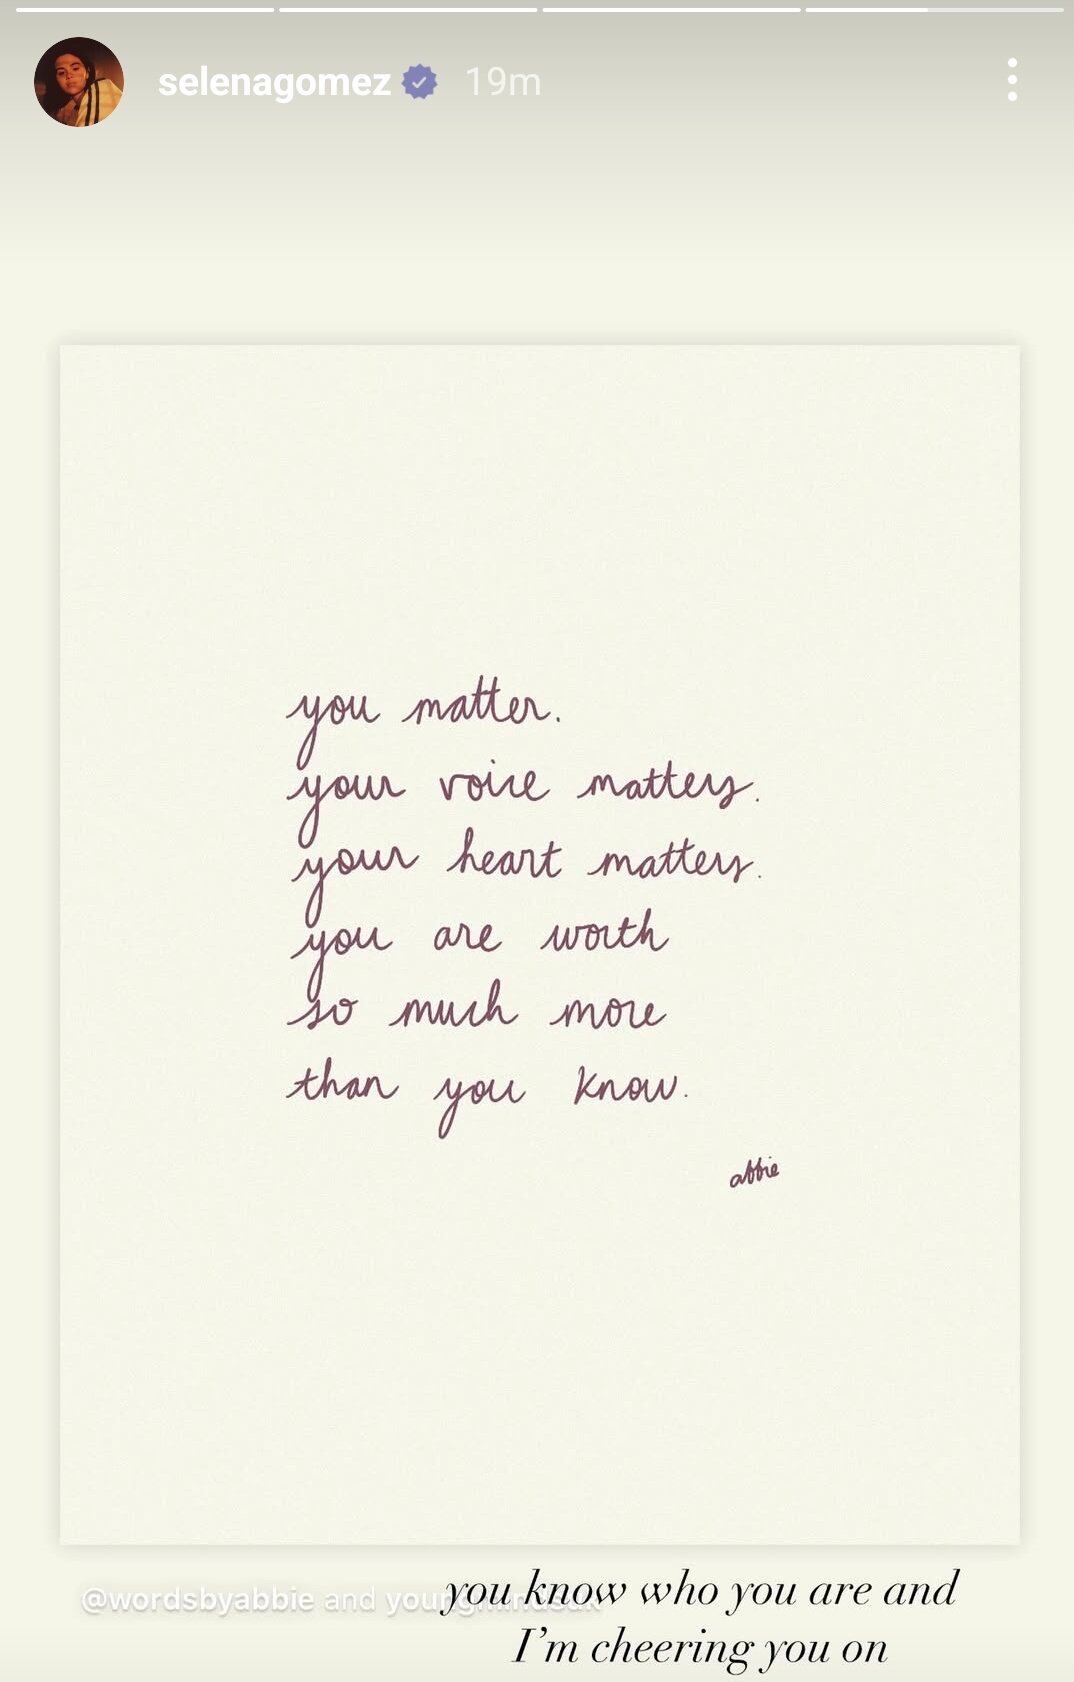 selenagomez 19m
you matter.
your voice matters.
your heart matters.
you are worth
so much more
than you know.
abbie
@wordsbyabbie and youngmindsuk
you know who you are and
I'm cheering you on